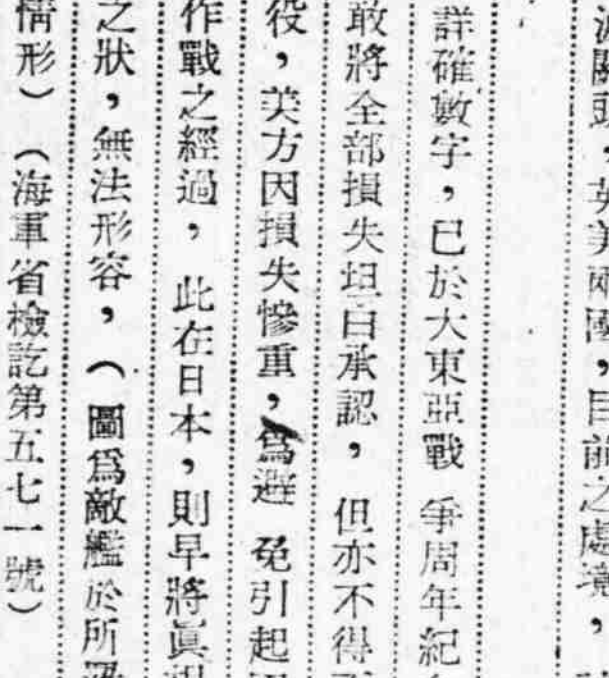 關頭，英美兩國，目前之處境，
詳確數字，已於大東亞戰爭周年紀
敢將全部損失坦白承認，但亦不得
役，美方因損失慘重，爲避免引起
作戰之經過，此在日本，則早將眞相
之狀，無法形容，（圖爲敵艦於所
情形）（海軍省檢訖第五七一號）